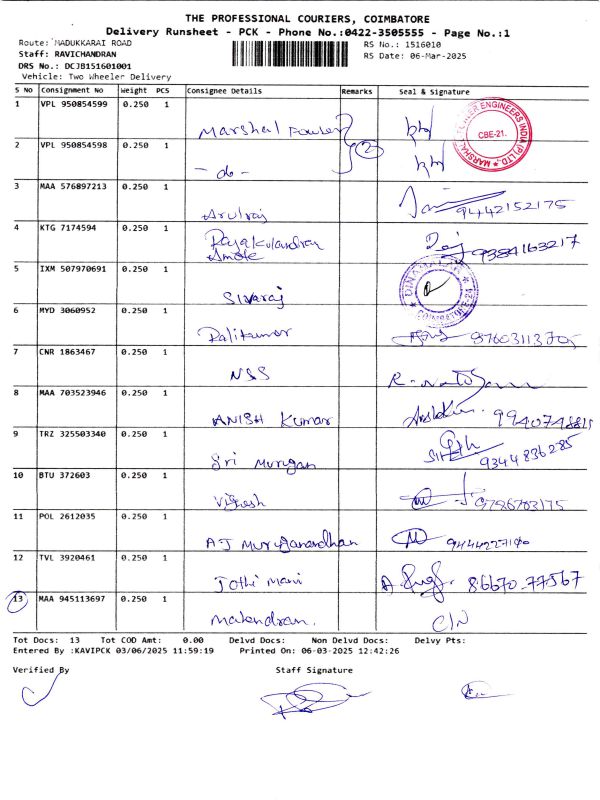 THE PROFESSIONAL COURIERS, COIMBATORE
Delivery Runsheet - PCK - Phone No.:0422-3505555 - Page No.:1
Route: MADUKKARAI ROAD
RS No.: 1516010
Staff: RAVICHANDRAN
RS Date: 06-Mar-2025
DRS No.: DCJB151601001
Vehicle: Two Wheeler Delivery
S No Consignment No Weight PCS Consignee Details Remarks Seal & Signature
1 VPL 950854599 0.250 1 Marshal Power
CBE-21.
2 VPL 950854598 0.250 1 - do - 2
3 MAA 576897213 0.250 1 Arulraj 9442152175
4 KTG 7174594 0.250 1 9384163217
5 IXM 507970691 0.250 1 Sivaraj
DINAMALAR
COIMBATORE-24
6 MYD 3060952 0.250 1
7 CNR 1863467 0.250 1 NSS
8 MAA 703523946 0.250 1 ANISH Kumar
9 TRZ 325503340 0.250 1 Sri Murugan 9344836285
10 BTU 372603 0.250 1 Vignesh
11 POL 2612035 0.250 1 AJ Muruganandhan
12 TVL 3920461 0.250 1 Jothi Mani 86670-77567
13 MAA 945113697 0.250 1 C/N
Tot Docs: 13 Tot COD Amt: 0.00 Delvd Docs: Non Delvd Docs: Delvy Pts:
Entered By :KAVIPCK 03/06/2025 11:59:19 Printed On: 06-03-2025 12:42:26
Verified By Staff Signature